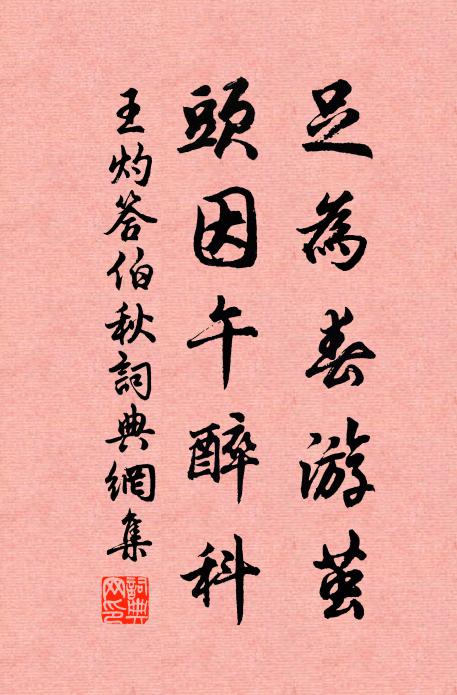 足為春游茧
頭因午醉科
王灼答伯秋詞典網集
詞典网印